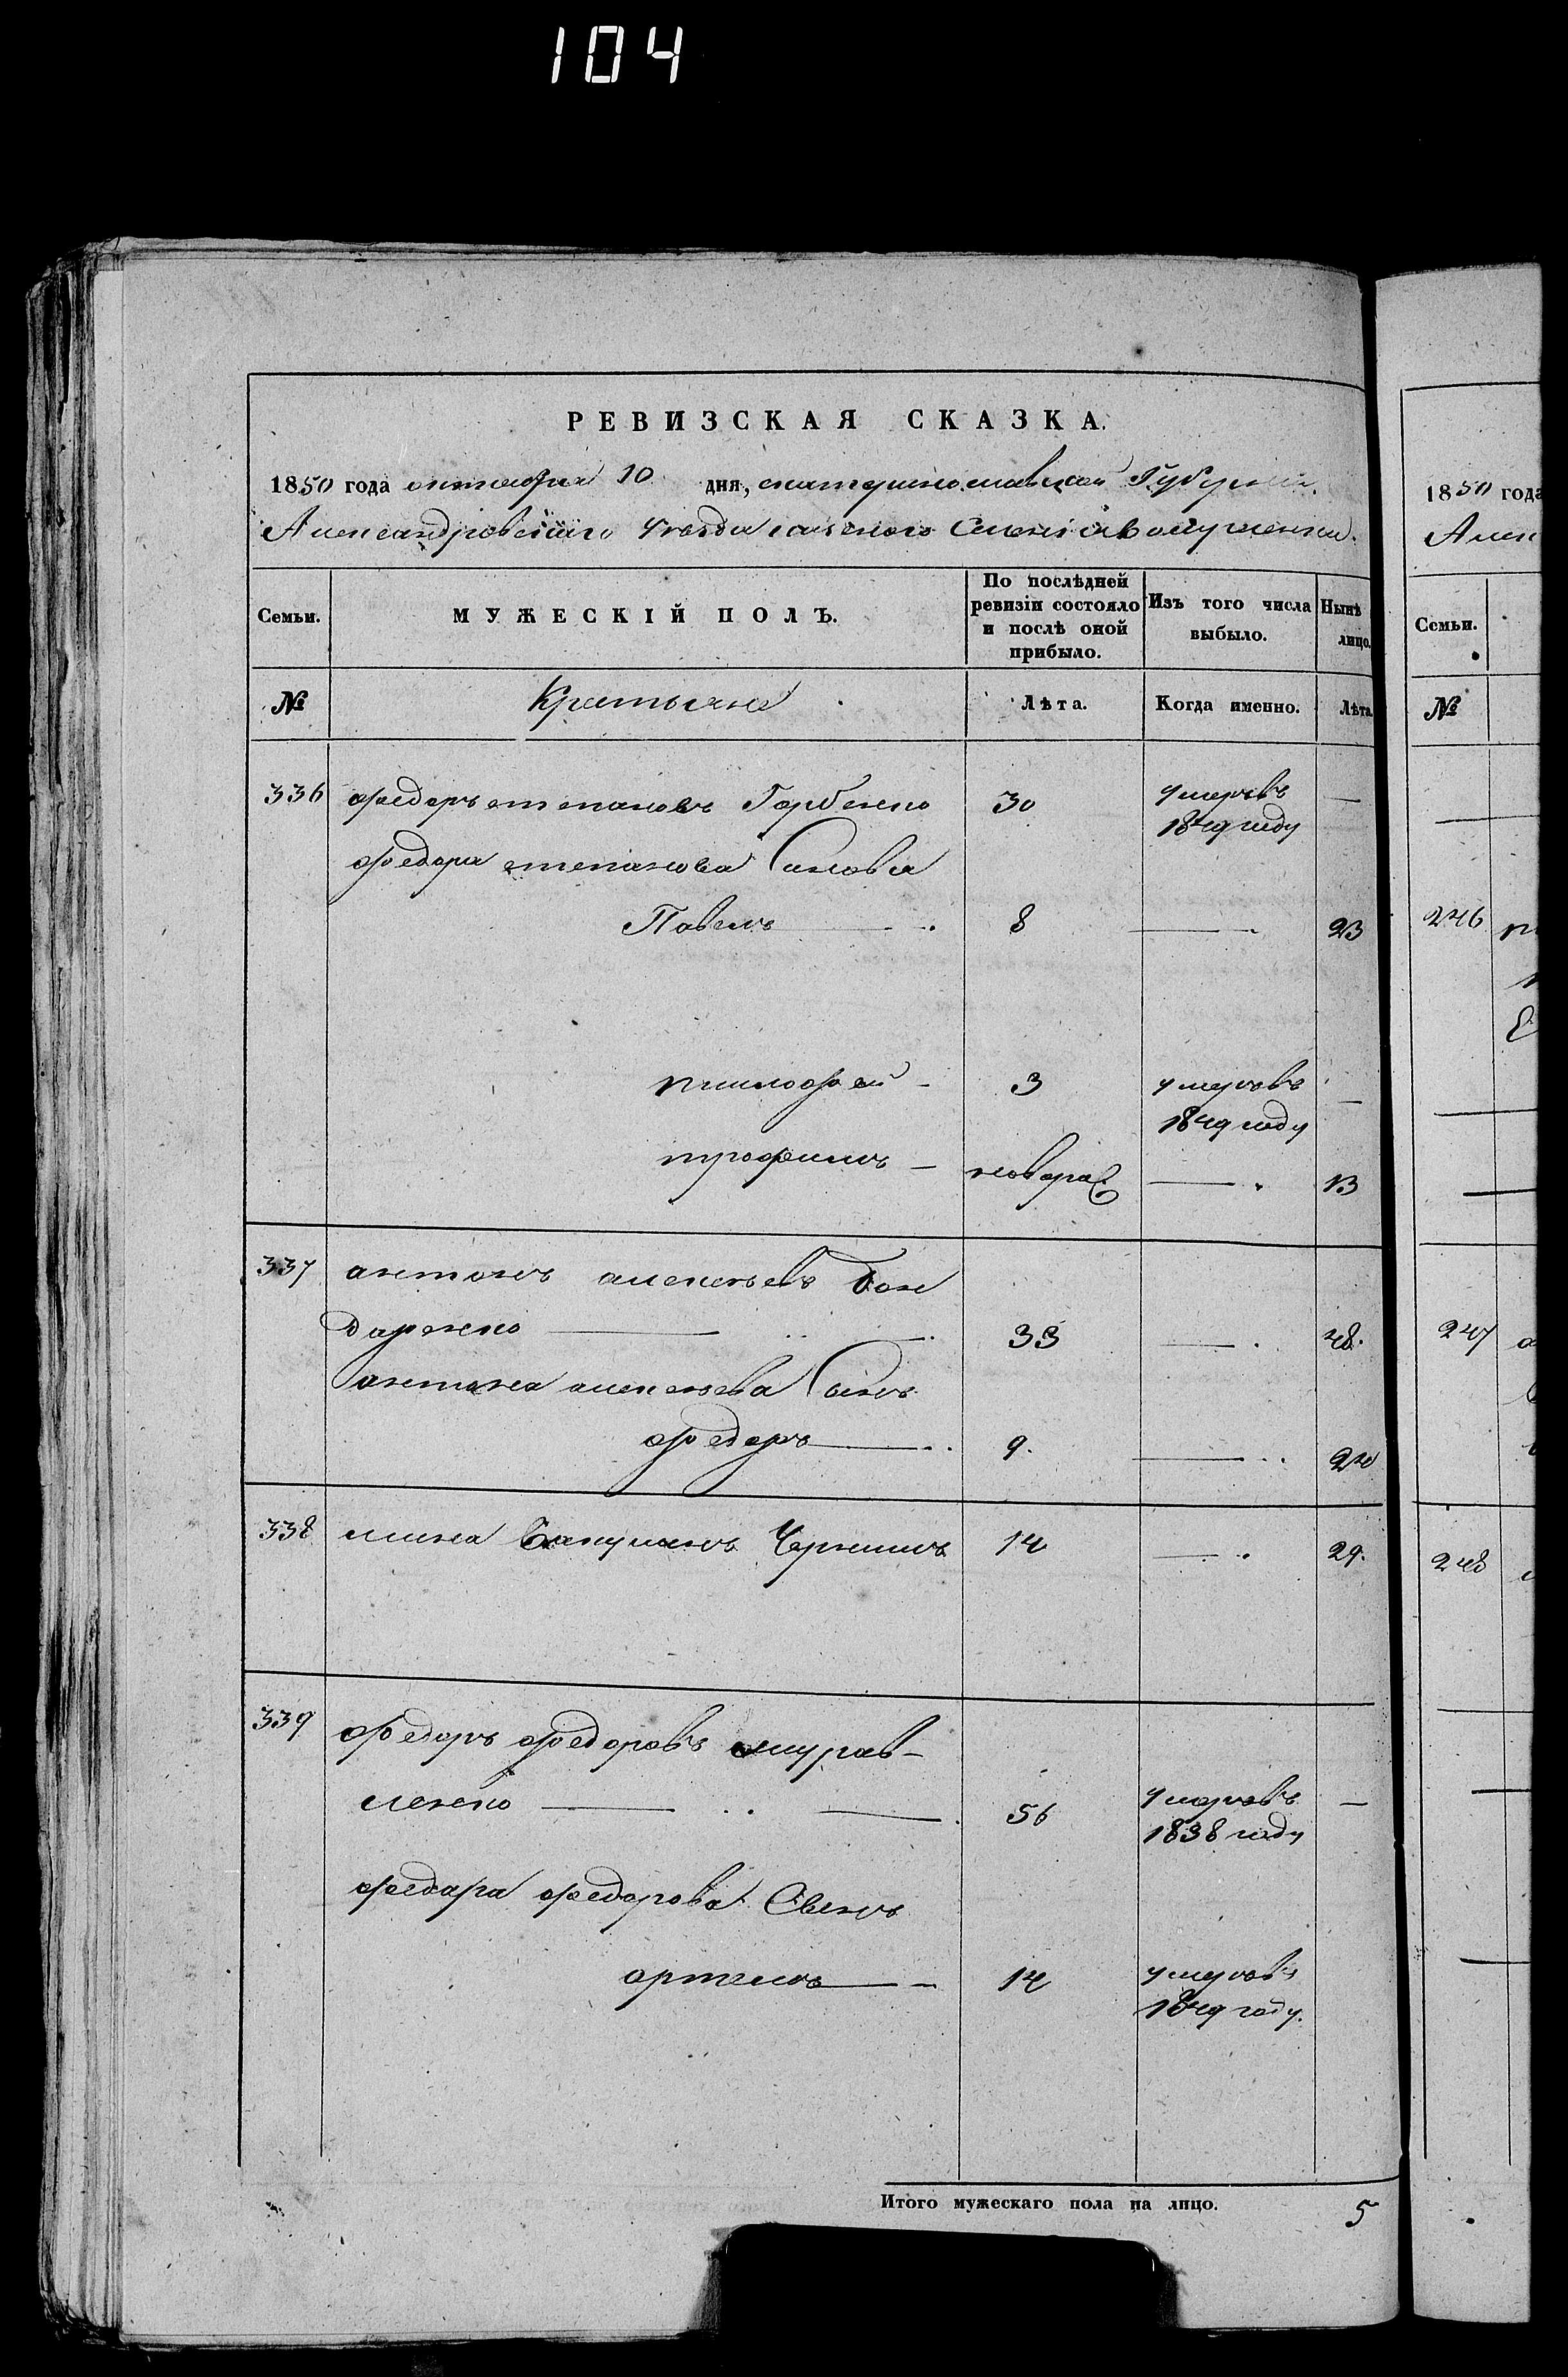 104
РЕВИЗСКАЯ СКАЗКА.
1850 года октября 10 дня, екатеринославской Губернии.
Александровского уезда казенного
Семьи. МУЖЕСКІЙ ПОЛЪ. По послѣдней ревизіи состояло и послѣ оной прибыло. Изъ того числа выбыло. Нынѣ лицо.
№ Крестьяне Лѣта. Когда именно. Лѣта
336 федоръ степановъ Горбенко 30 умеръ въ —
1849 году
федора степанова Сыновья
Павелъ 8 — 23
тимофей — 3 умеръ въ —
1849 году
трофимъ — новорож — 13
337 антонъ алексеевъ Бон
даренко 33 — 48.
антона алексеева Сынъ
федоръ 9. — 24
338 мина Чернышъ 14 — 29.
339 федоръ федоровъ журав-
ленко 56 умеръ въ —
1838 году
федора федорова Сынъ
артемъ — 14 умеръ въ
1849 году.
Итого мужескаго пола на лицо. 5
1850 года
Алек
Семьи.
№
246
247
248